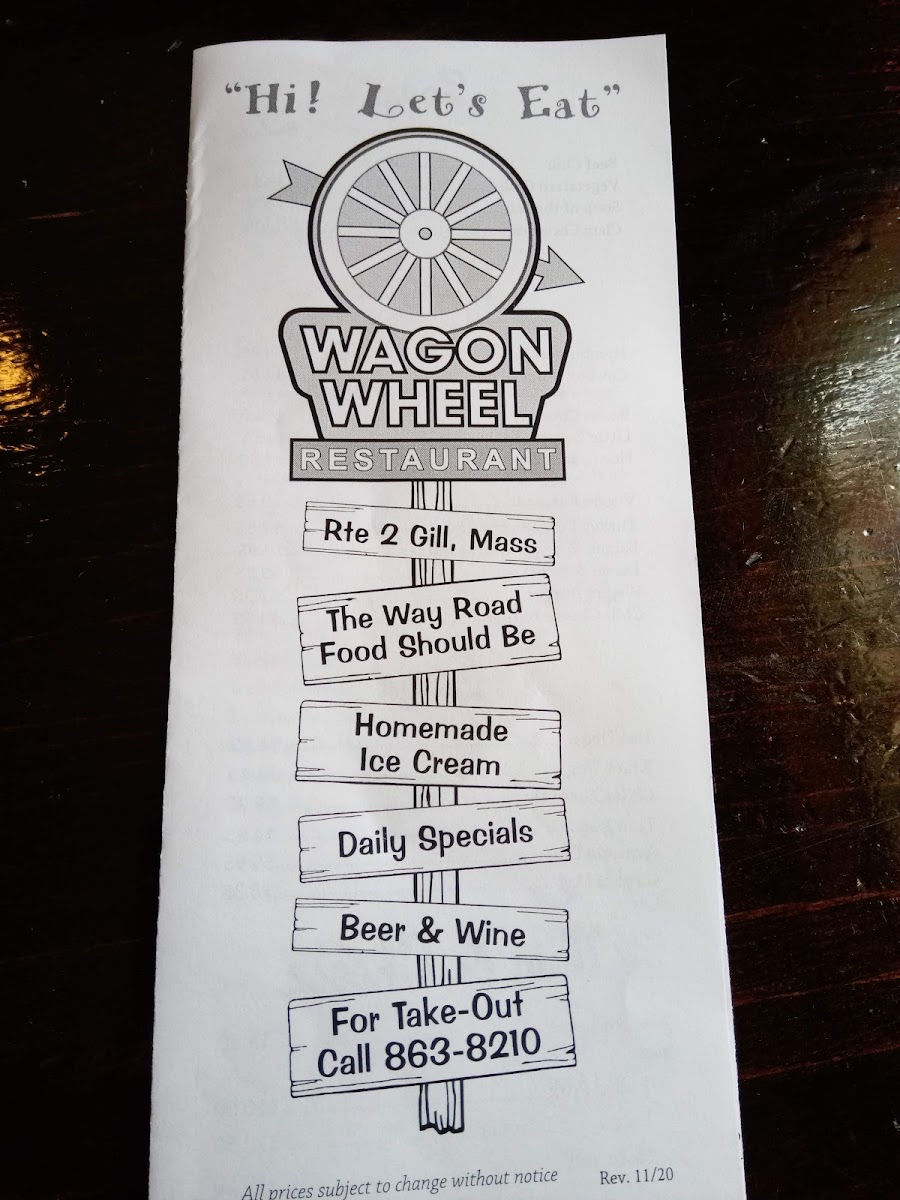 "Hi! Let's Eat"
WAGON
WHEEL
RESTAURANT
Rte 2 Gill, Mass
The Way Road
Food Should Be
Homemade
Ice Cream
Daily Specials
Beer & Wine
For Take-Out
Call 863-8210
All prices subject to change without notice Rev. 11/20